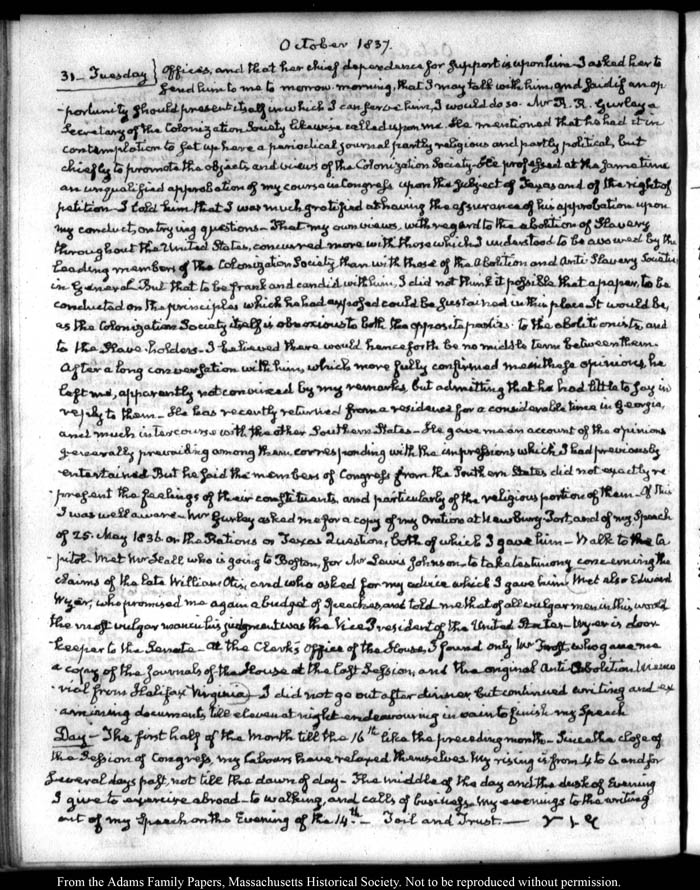 October 1837.
31- Tuesday} Offices, and that her chief dependence for support is upon him- I asked her to
send him to me to morrow morning, that I may talk with him and said if an op
-portunity should present itself in which I can serve him, I would do so- Mr R. R. Gurley a
Secretary of the Colonization Society likewise called upon me. He mentioned that he had it in
contemplation to set up here a periodical journal partly religious and partly political, but
chiefly to promote the objects and views of the Colonization Society- He professed at the same time
an unqualified approbation of my course in Congress upon the subject of Texas and of the right of
petition- I told him that I was much gratified at having the assurance of his approbation upon
my conduct, on trying questions- That my own views, with regard to the abolition of Slavery
throughout the United States, concurred more with those which I understood to be avowed by the
leading members of the Colonization Society than with those of the Abolition and Anti Slavery Societies
in General. But that to be frank and candid with him, I did not think it possible that a paper, to be
conducted on the principles which he had exposed could be sustained in this place. It would be,
as the Colonization Society itself is obnoxious to both the opposite parties- to the abolitionists, and
to the Slave-holders- I believed there would henceforth be no middle term between them.
After a long conversation with him, which more fully confirmed me in these opinions, he
left me, apparently not convinced by my remarks, but admitting that he had little to say in
reply to them- He has recently returned from a residence for a considerable time in Georgia,
and much intercourse with the other Southern States- He gave me an account of the opinions
generally prevailing among them corresponding with the impressions which I had previously
entertained But he said the members of Congress from the Southern States did not exactly re
-present the feelings of their constituents, and particularly of the religious portion of them- Of this
I was well aware- Mr Gurley asked me for a copy of my Oration at Newbury-Port, and of my Speech
of 25. May 1836. on the Rations or Texas Question, both of which I gave him- Walk to the Ca
-pitol- Met Mr Seall who is going to Boston, for Mr Lewis Johnson, to take testimony concerning the
claims of the late William Otis, and who asked for my advice which I gave him- Met also Edward
Wyer, who promised me again a budget of Speeches and told me that of all vulgar men in this world
the most vulgar man in his judgment was the Vice President of the United States- Wyer is door
-keeper to the Senate- At the Clerk's Office of the House, I found only Mr Frost, who gave me
a copy of the Journals of the House at the last Session, and the original Anti Abolition Memo
-rial from Halifax Virginia- I did not go out after dinner, but continued writing and ex
-amining documents, till eleven at night endeavouring in vain to finish my Speech
Day- The first half of the Month till the 16th like the preceding month- Since the close of
the Session of Congress, my labours have relaxed themselves. My rising is from 4 to 6 and for
several days past, not till the dawn of day- The middle of the day and the dusk of Evening
I give to exercise abroad- to walking, and calls of business. My evenings to the writing
out of my Speech on the Evening of the 14th- Toil and Trust.-
From the Adams Family Papers, Massachusetts Historical Society. Not to be reproduced without permission.